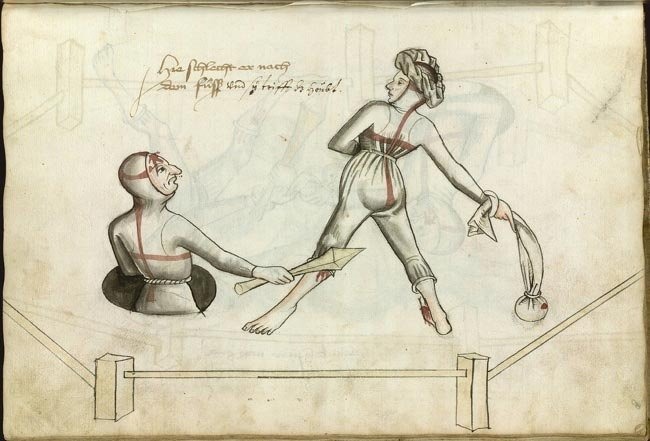 Hie schlecht er nach
dem fuſſ vnd sy triff dz hòubt.